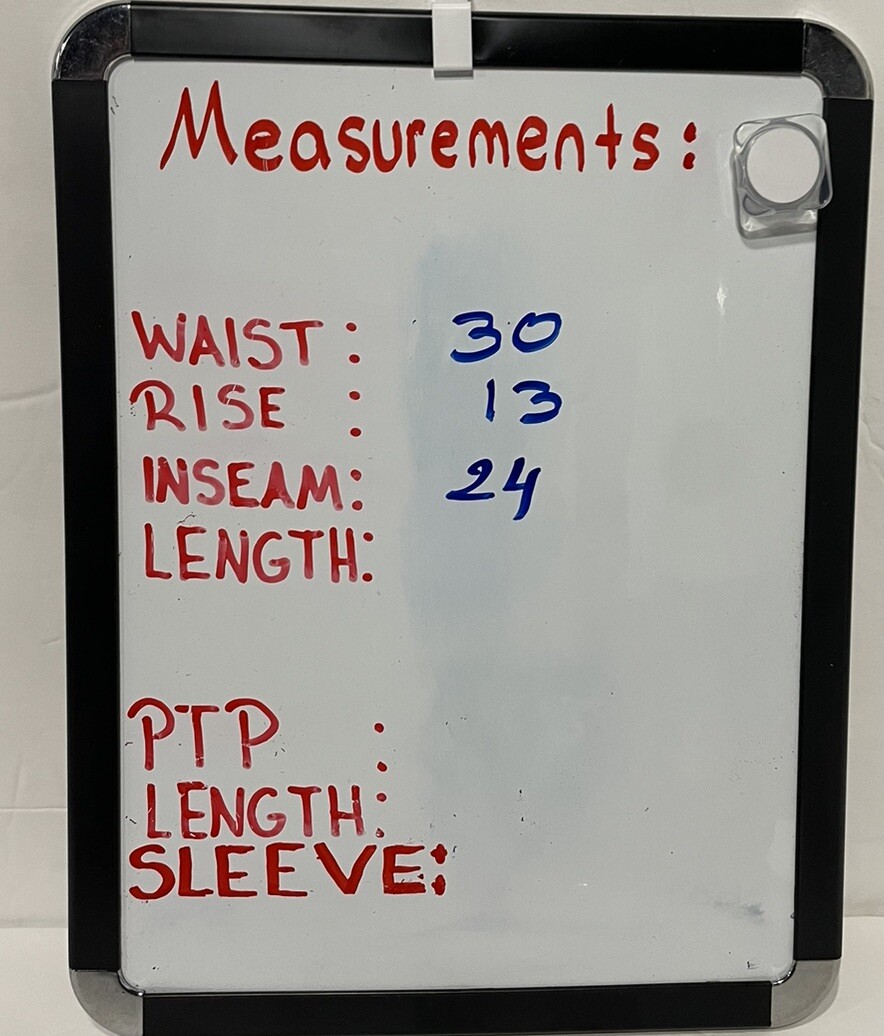 Measurements:
WAIST: 30
RISE : 13
INSEAM: 24
LENGTH:
PTP :
LENGTH:
SLEEVE: